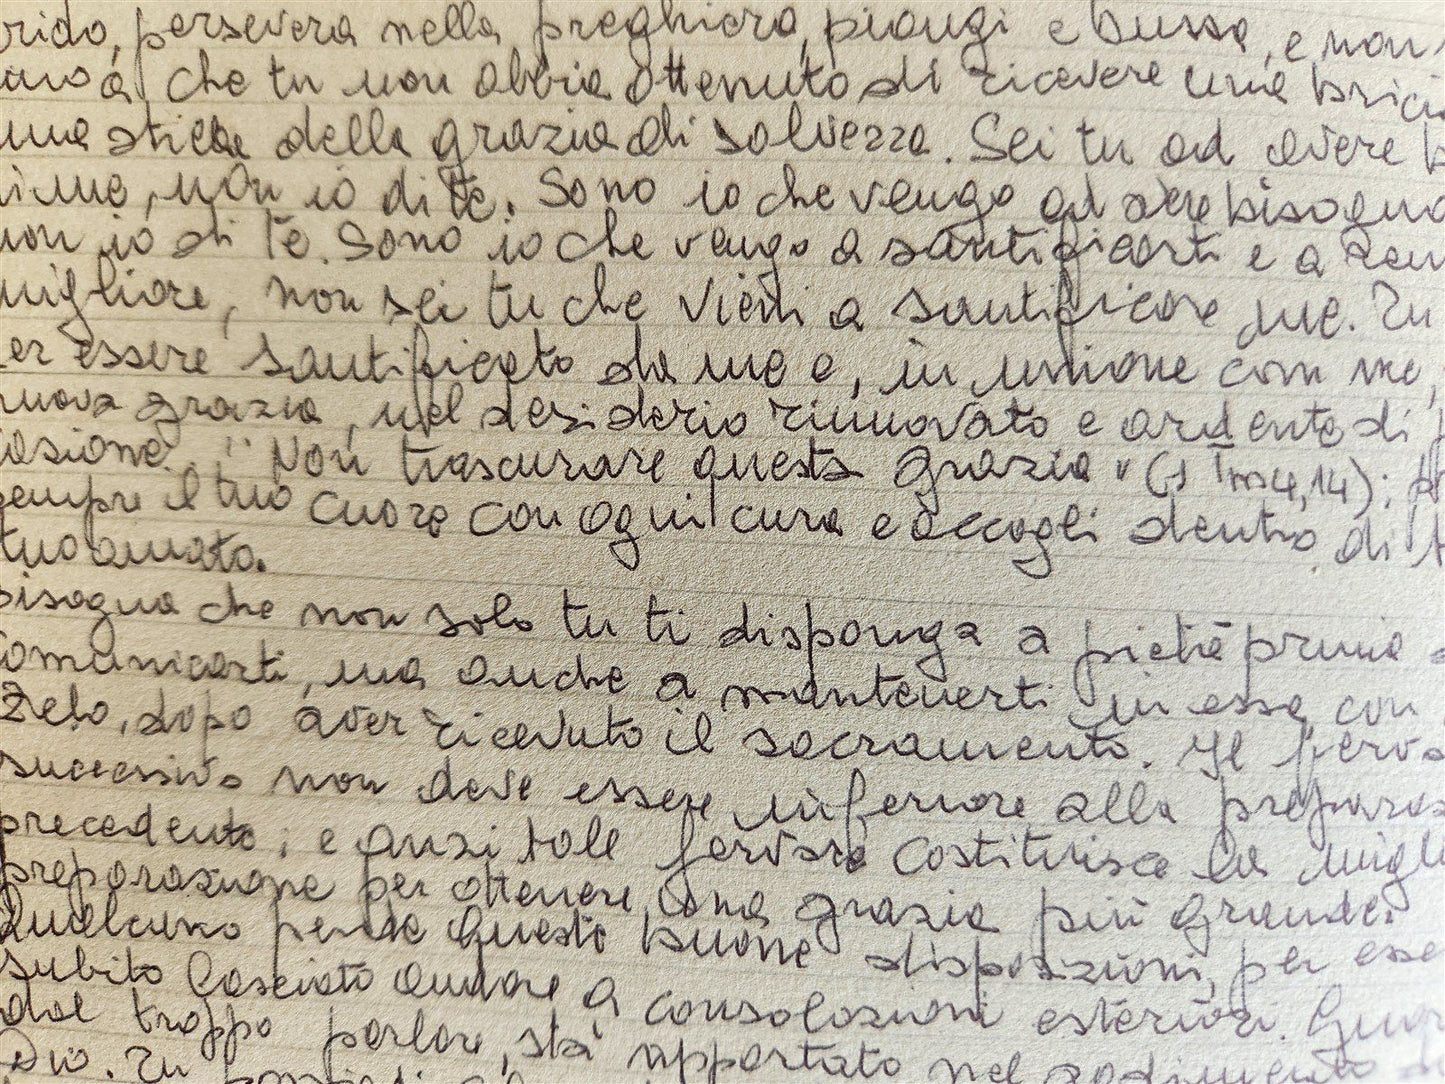 rido, persevera nella preghiera, piangi e bussa, e non
che tu non abbia ottenuto di ricevere una brici
una stilla della grazia di salvezza. Sei tu ad avere b
di me, non io di te. Sono io che vengo ad bisogno
non io di te. Sono io che vengo a santificarti e a ren
migliore, non sei tu che vieni a santificare me. Tu
er essere santificato da me e, in unione con me,
nuova grazia, nel desiderio rinnovato e ardente di p
casione. "Non trascurare questa grazia" (1 Tm 4,14);
sempre il tuo cuore con ogni cura e accogli dentro di t
tuo amato.
bisogna che non solo tu ti disponga a pietà prima
comunicarti, ma anche a mantenerti in essa, con
zelo, dopo aver ricevuto il sacramento. Il fervo
successivo non deve essere inferiore alla preparaz
precedente; e anzi tale fervore costituisce la migli
preparazione per ottenere una grazia più grande.
Qualcuno perde queste buone disposizioni, per esse
subito lasciato andare a consolazioni esteriori. Guar
dal troppo parlare, sta appartato nel godimento d
Dio. Tu